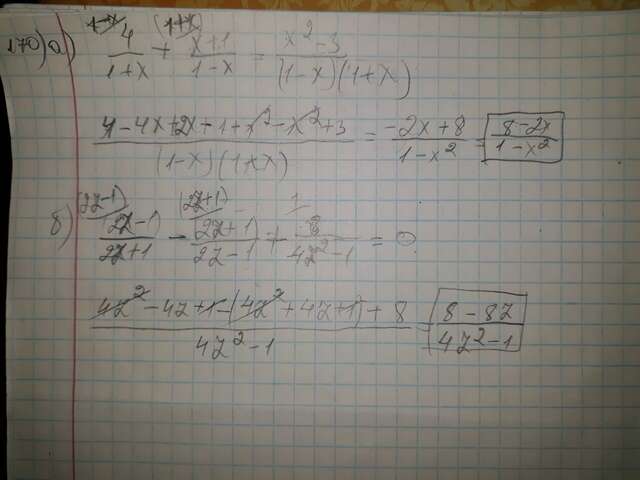 170) а) 4/(1+x) + (x+1)/(1-x) = (x²-3)/((1-x)(1+x))
(4-4x+2x+1+x²-x²+3)/((1-x)(1+x)) = (-2x+8)/(1-x²) = (8-2x)/(1-x²)
(2z-1) (2z+1) 1
б) (2z-1)/(2z+1) - (2z+1)/(2z-1) + 8/(4z²-1) = 0
(4z²-4z+1-(4z²+4z+1)+8)/(4z²-1) = (8-8z)/(4z²-1)